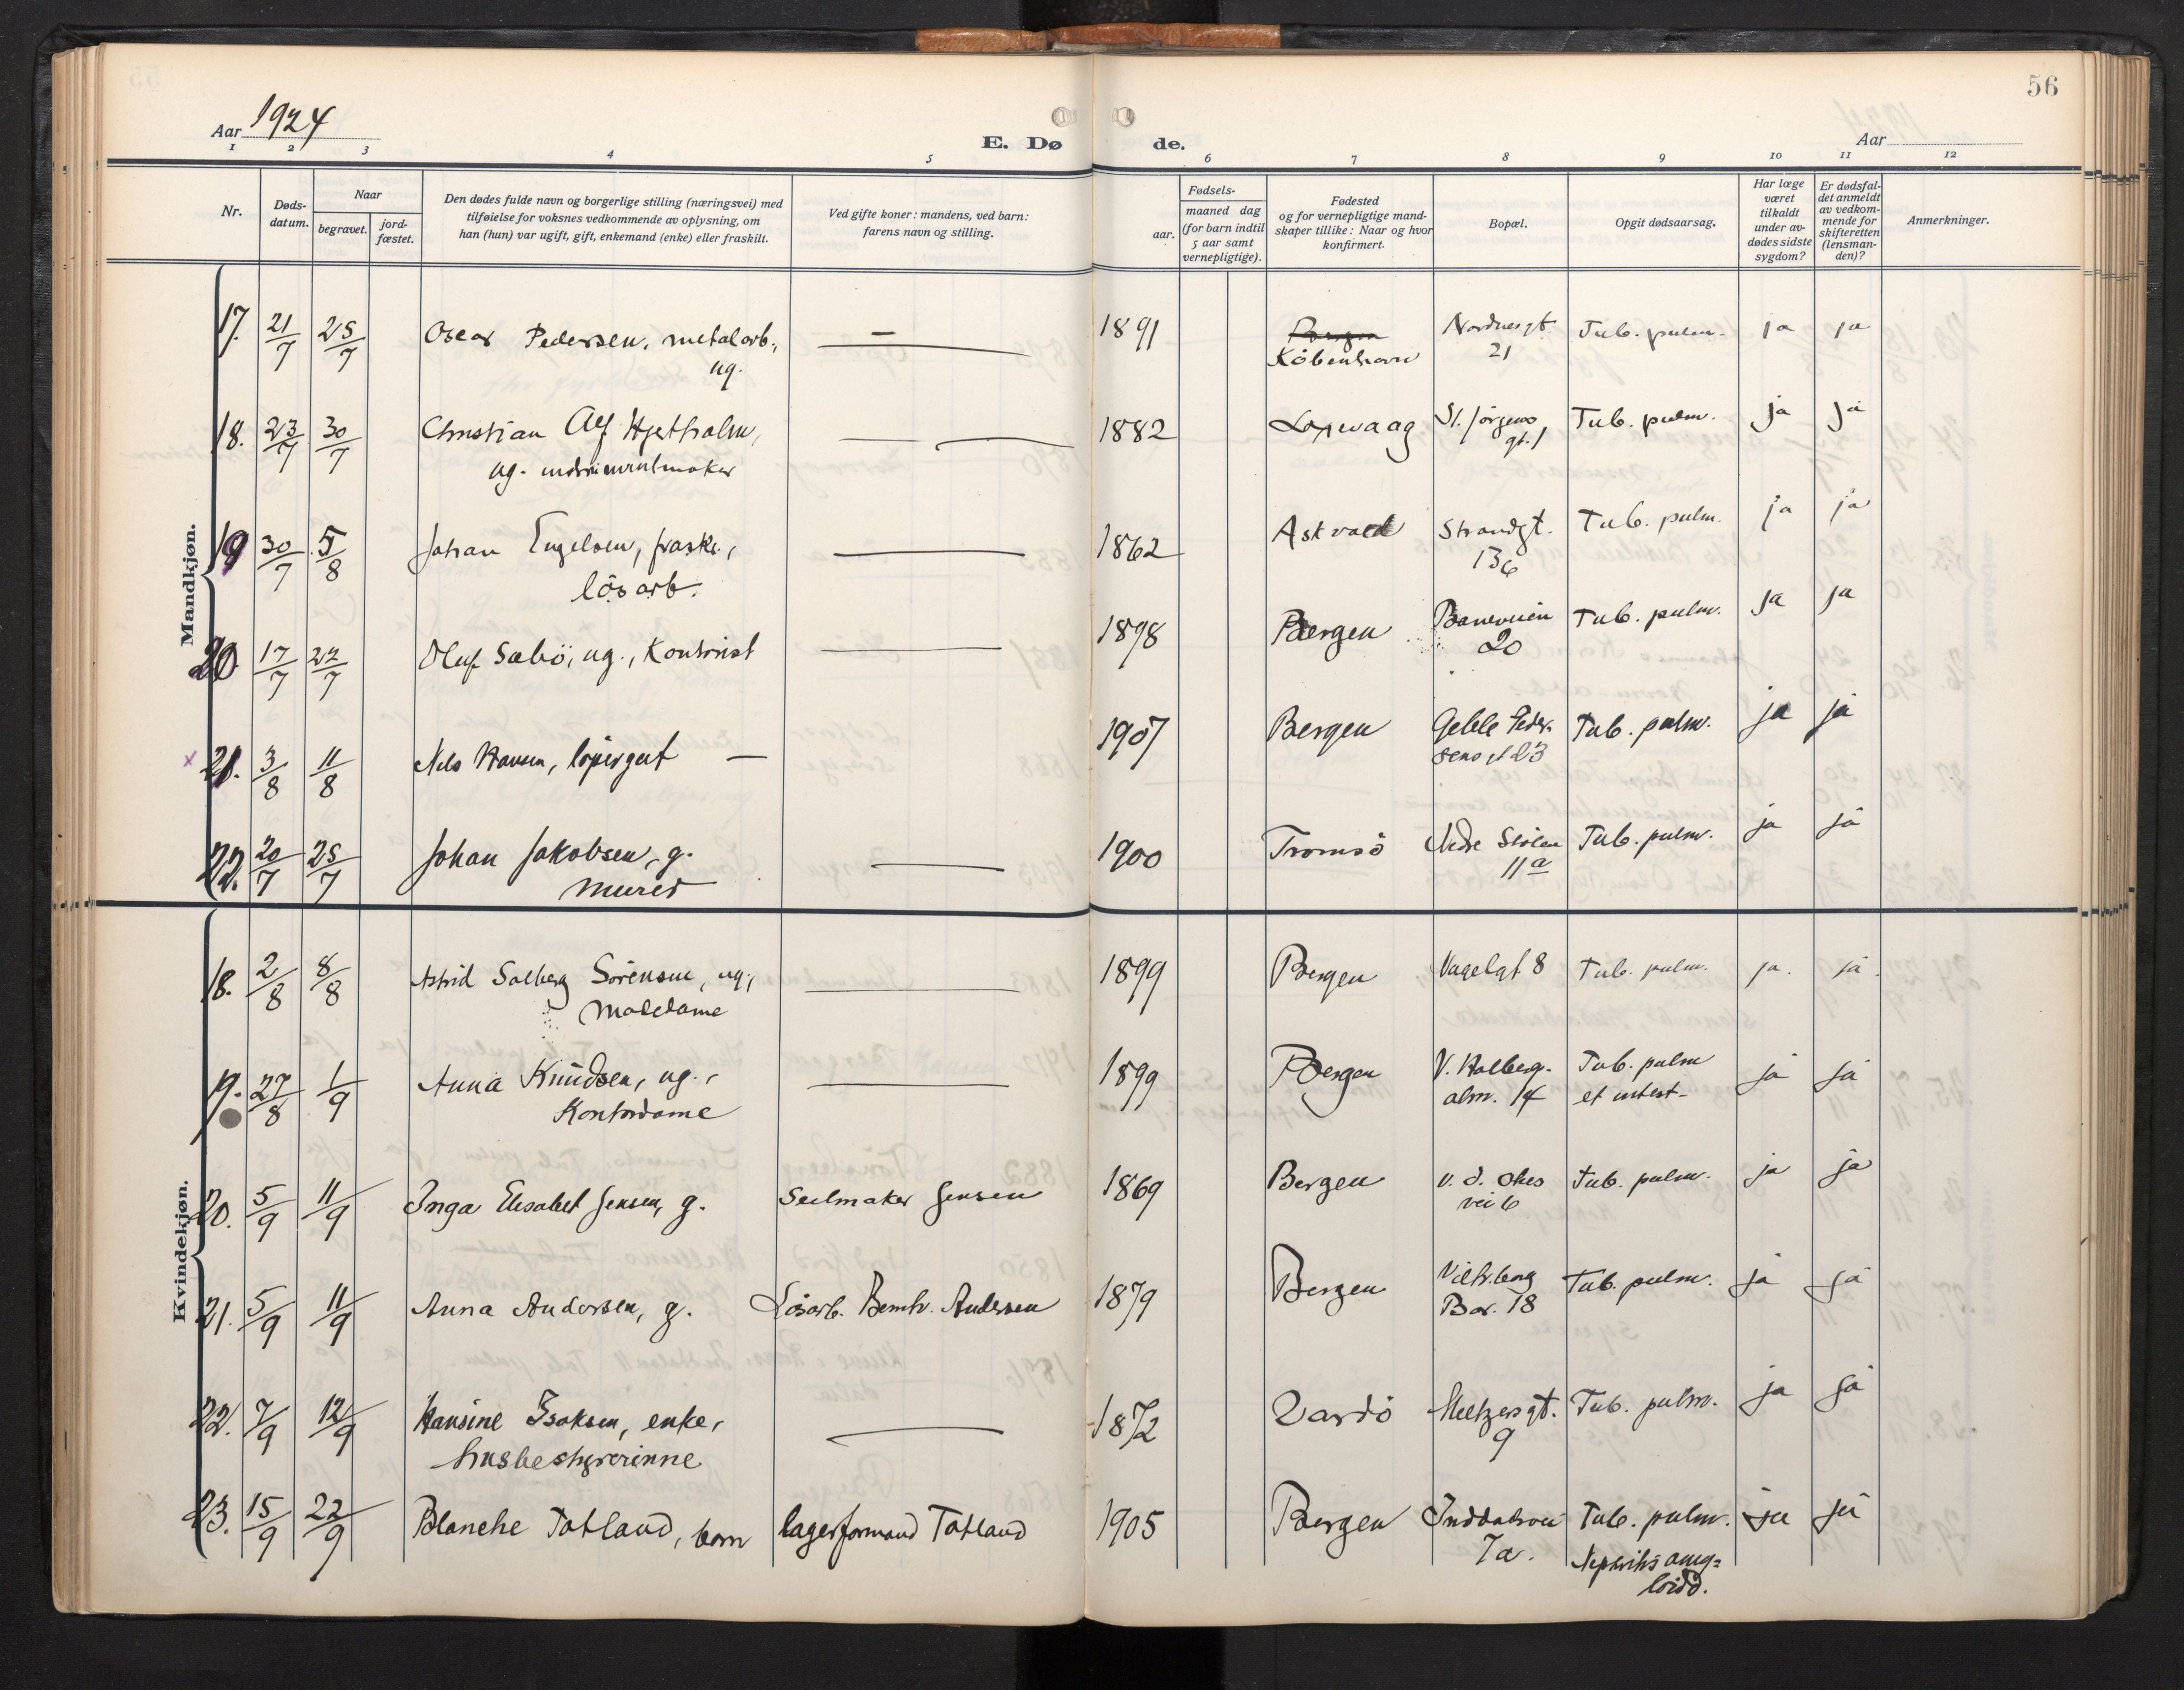 56
Aar 1924
E. Dø de.
Aar
1 2 3 4 5 6 7 8 9 10 11 12
Nr.
Døds-
datum.
Naar
begravet.
jord-
fæstet.
Den dødes fulde navn og borgerlige stilling (næringsvei) med
tilføielse for voksnes vedkommende av oplysning, om
han (hun) var ugift, gift, enkemand (enke) eller fraskilt.
Ved gifte koner: mandens, ved barn:
farens navn og stilling.
Fødsels-
aar.
maaned dag
(for barn indtil
5 aar samt
vernepligtige).
Fødested
og for vernepligtige mand-
skaper tillike: Naar og hvor
konfirmert.
Bopæl.
Opgit dødsaarsag.
Har læge
været
tilkaldt
under av-
dødes sidste
sygdom?
Er dødsfal-
det anmeldt
av vedkom-
mende for
skifteretten
(lensman-
den)?
Anmerkninger.
Mandkjøn.
17. 21/7 25/7 Oscar Pedersen, metalarb., — 1891 Bergen Nordnesgt. Tub. pulm. ja ja
ug. København 21
18. 23/7 30/7 Christian Alf Hjertholm, — 1882 St. Jörgens Tub. pulm. ja ja
ug. instrumentmaker gt. 1
19 30/7 5/8 Johan Engelsen, frask., — 1862 Askvold Strandgt. Tub. pulm. ja ja
lösarb. 136
20. 17/7 22/7 Oluf Sæbö, ug., Kontorist — 1898 Bergen Baneveien Tub. pulm. ja ja
20
21. 3/8 11/8 Nils Hansen, löpergut — 1907 Bergen Geble Peder- Tub. pulm. ja ja
sens gt 23
22. 20/7 25/7 Johan Jakobsen, g. — 1900 Tromsö Nedre Stölen Tub. pulm. ja ja
murer 11a
Kvindekjøn.
18. 2/8 8/8 Astrid Solberg Sörensen, ug., — 1899 Bergen Vagelgt 8 Tub. pulm. ja. ja.
Modedame
19. 27/8 1/9 Anna Knudsen, ug., — 1899 Bergen V. Holberg- Tub. pulm ja ja
Kontordame alm. 14 et intest-
20. 5/9 11/9 Inga Elisabet Jensen, g. Seilmaker Jensen 1869 Bergen v. d. Ohes Tub. pulm. ja ja
vei 6
21. 5/9 11/9 Anna Andersen, g. Lösarb. Bernh. Andersen 1879 Bergen Tub. pulm. ja ja
Bar. 18
22. 7/9 12/9 Hansine Isaksen, enke, — 1872 Vardö Meltzersgt. Tub. pulm. ja ja
husbestyrerinne 9
23. 15/9 22/9 Blanche Totland, barn lagerformand Totland 1905 Bergen Inddalsvei Tub. pulm. ja ja
7a. Nephritis amy-
loidd.